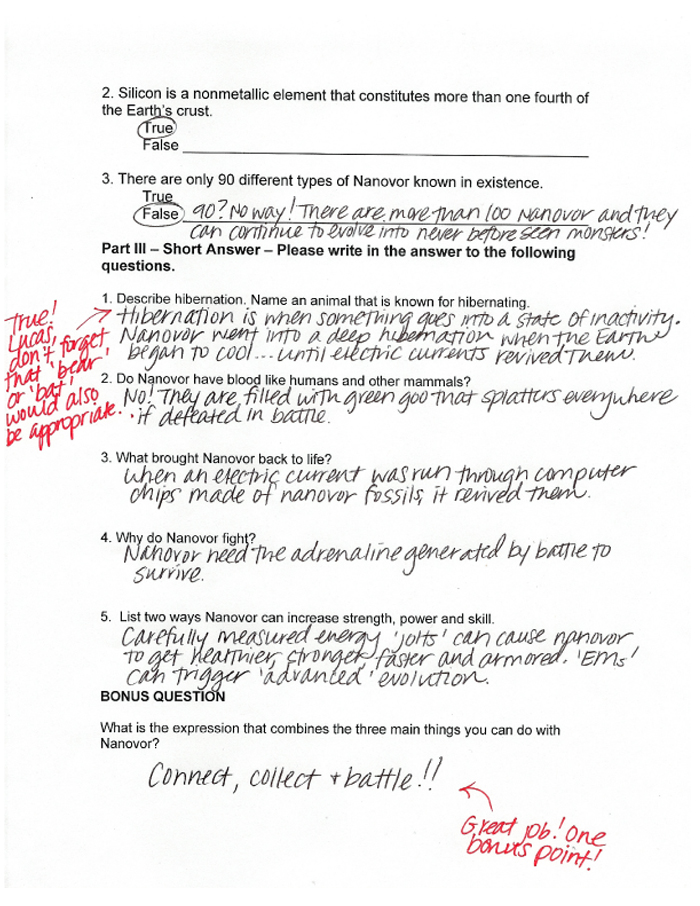 2. Silicon is a nonmetallic element that constitutes more than one fourth of
the Earth's crust.
True
False
3. There are only 90 different types of Nanovor known in existence.
True
False 90? No way! There are more than 100 Nanovor and they
can continue to evolve into never before seen monsters!
Part III – Short Answer – Please write in the answer to the following
questions.
1. Describe hibernation. Name an animal that is known for hibernating.
Hibernation is when something goes into a state of inactivity.
Nanovor went into a deep hibernation when the Earth
began to cool... until electric currents revived them.
True!
Lucas,
don't forget
that 'bear'
or 'bat'
would also
be appropriate.
2. Do Nanovor have blood like humans and other mammals?
No! They are filled with green goo that splatters everywhere
if defeated in battle.
3. What brought Nanovor back to life?
When an electric current was run through computer
chips made of nanovor fossils, it revived them.
4. Why do Nanovor fight?
Nanovor need the adrenaline generated by battle to
survive.
5. List two ways Nanovor can increase strength, power and skill.
Carefully measured energy 'jolts' can cause nanovor
to get healthier, stronger, faster and armored. 'EMs'
can trigger 'advanced' evolution.
BONUS QUESTION
What is the expression that combines the three main things you can do with
Nanovor?
Connect, collect + battle!!
Great job! One
bonus point!